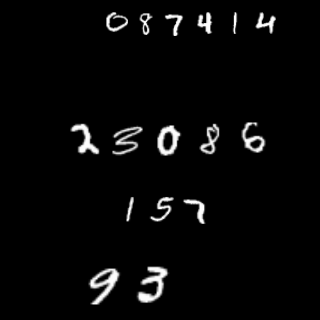 087414
23086
157
93